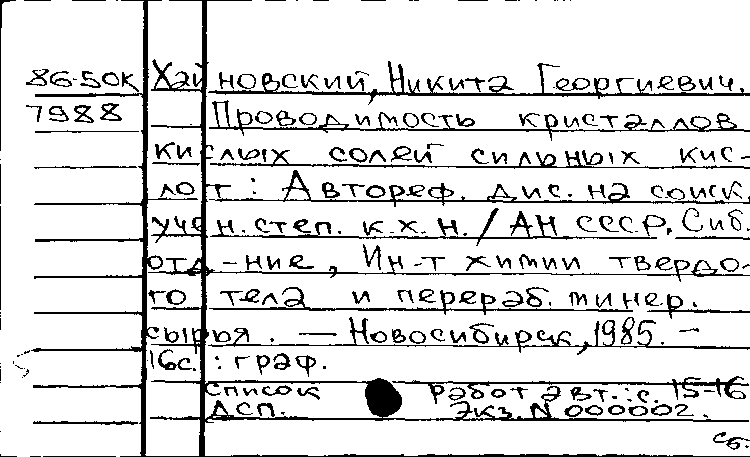 86-50К Хайновский, Никита Георгиевич.
7988 Проводимость кристаллов
кислых солей сильных кис-
лот : Автореф. дис. на соиск.
учен. степ. к.х.н. / АН СССР, Сиб.
отд-ние, Ин-т химии твердо-
го тела и перераб. минер.
сырья. — Новосибирск, 1985. –
16с. : граф.
список работ авт.: с. 15-16
ДСП. Экз. N 000002.
сб.